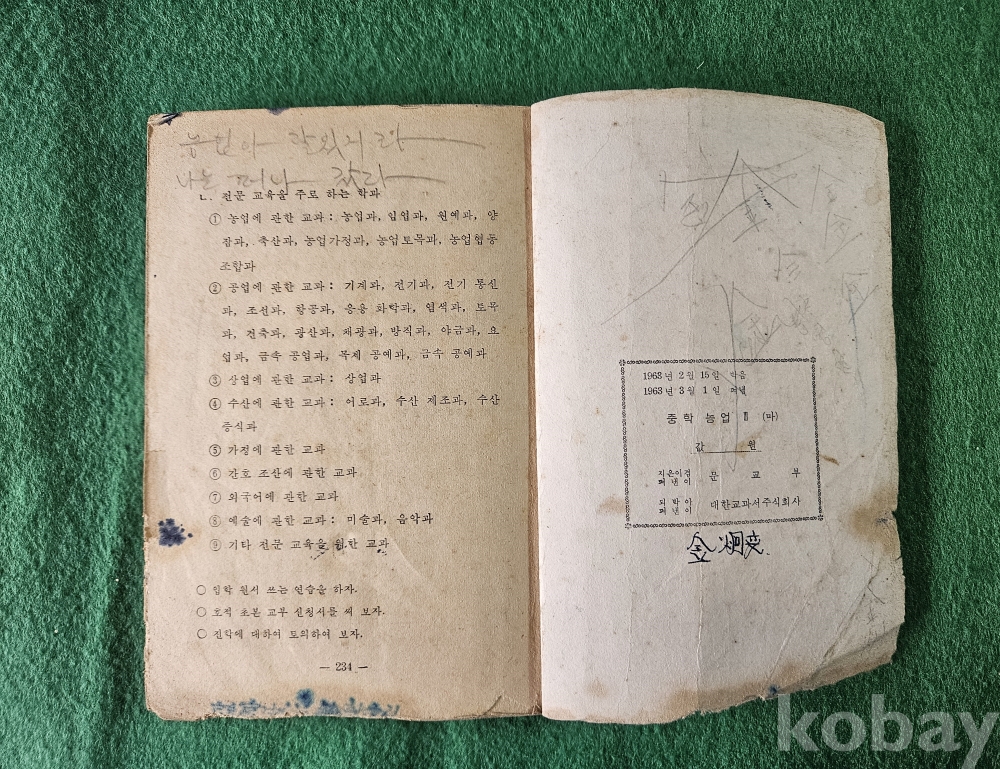 농업아 잘있거라
나는 떠나 간다
ㄴ. 전문 교육을 주로 하는 학과
① 농업에 관한 교과: 농업과, 임업과, 원예과, 양
잠과, 축산과, 농업가정과, 농업토목과, 농업협동
조합과
② 공업에 관한 교과: 기계과, 전기과, 전기 통신
과, 조선과, 항공과, 응용 화학과, 염색과, 토목
과, 건축과, 광산과, 채광과, 방직과, 야금과, 요
업과, 금속 공업과, 목제 공예과, 금속 공예과
③ 상업에 관한 교과: 상업과
④ 수산에 관한 교과: 어로과, 수산 제조과, 수산
증식과
⑤ 가정에 관한 교과
⑥ 간호 조산에 관한 교과
⑦ 외국어에 관한 교과
⑧ 예술에 관한 교과: 미술과, 음악과
⑨ 기타 전문 교육을 위한 교과
○ 입학 원서 쓰는 연습을 하자.
○ 호적 초본 교부 신청서를 써 보자.
○ 진학에 대하여 토의하여 보자.
— 234 —
金
1963년 2월 15일 박음
1963년 3월 1일 펴냄
중학 농업 Ⅱ (마)
값 원
지은이겸
펴낸이 문교부
되박아
펴낸이 대한교과서주식회사
金炯
kobay